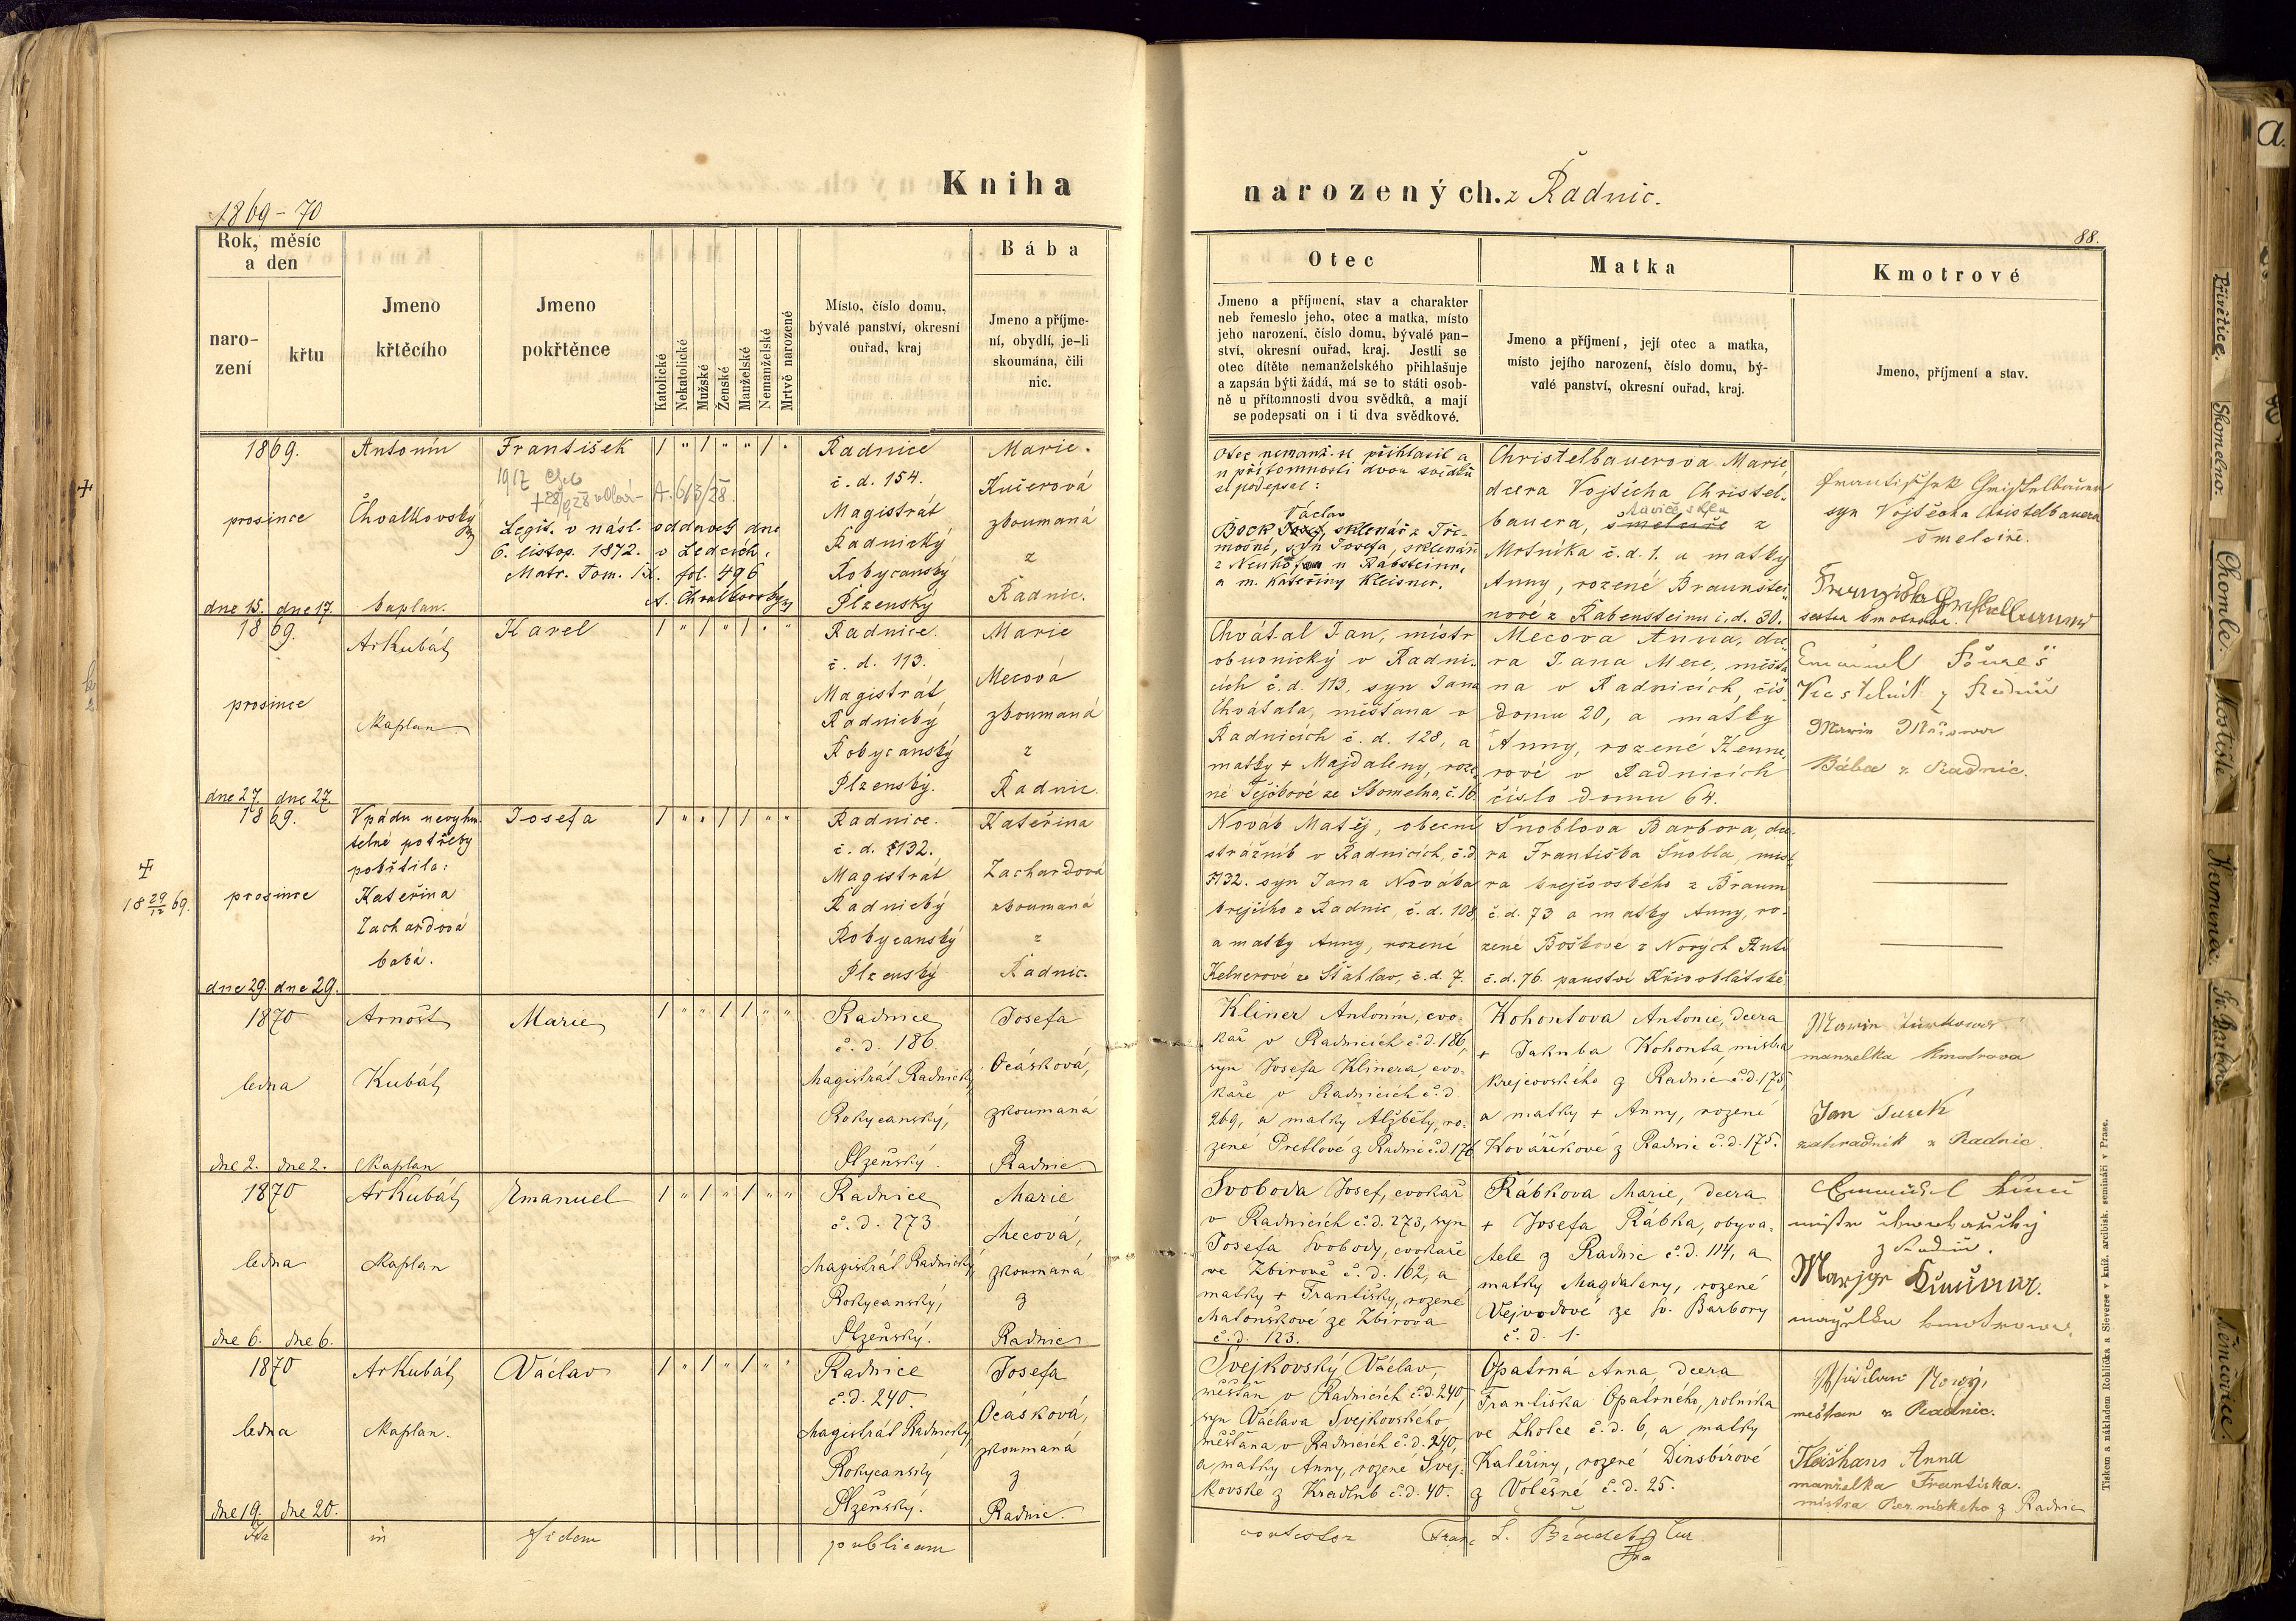 Kniha
narozených. z Radnic.
1869-70
88.
Rok, měsíc
a den
naro-
zení
křtu
Jmeno
křtěcího
Jmeno
pokřtěnce
Katolické
Nekatolické
Mužské
Ženské
Manželské
Nemanželské
Mrtvě narozené
Místo, číslo domu,
bývalé panství, okresní
ouřad, kraj
Bába
Jmeno a příjme-
ní, obydlí, je-li
skoumána, čili
nic.
Otec
Jmeno a příjmení, stav a charakter
neb řemeslo jeho, otec a matka, místo
jeho narození, číslo domu, bývalé pan-
ství, okresní ouřad, kraj. Jestli se
otec dítěte nemanželského přihlašuje
a zapsán býti žádá, má se to státi osob-
ně u přítomnosti dvou svědků, a mají
se podepsati on i ti dva svědkové.
Matka
Jmeno a příjmení, její otec a matka,
místo jejího narození, číslo domu, bý-
valé panství, okresní ouřad, kraj.
Kmotrové
Jmeno, příjmení a stav.
1869.
prosince
dne 15. dne 17.
Antonín
Chvalkovský
kaplan.
František
Legit. v násl. oddavek dne
6. listop. 1872. v Ledcích.
Matr. Tom. IX. fol. 496
A. Chvalkovský
Radnice
č. d. 154.
Magistrát
Radnický
Rokycanský
Plzenský
Marie
Kučerová
zkoumaná
z
Radnic.
Otec nemanž. se přihlasil a
u přítomnosti dvou svědků
se podepsal:
Václav
Bock, sklenář z Tře-
mošné, syn Josefa, sklenáře
z Neuhof u Rabsteinu,
a m. Kateřiny Kleisner.
Christelbauerova Marie
dcera Vojtěcha Christel-
bauera, šmelcíře z
Mrtníka č. d. 1. a matky
Anny, rozené Braunštei-
nové z Rabensteinu č. d. 30.
František Christelbauer
syn Vojtěcha Christelbauera
šmelcíře.
sestra kmotrova.
1869.
prosince
dne 27. dne 27.
Ar Kubát
Kaplan
Karel
Radnice.
č. d. 113.
Magistrát
Radnický
Rokycanský
Plzenský.
Marie
Mecová
zkoumaná
z
Radnic.
Chvátal Jan, mistr
obuvnický v Radni-
cích č. d. 113, syn Jana
Chvátala, měšťana v
Radnicích č. d. 128, a
matky + Majdaleny, roze-
né Tejčkové ze Skomelna, č. 16
Mecova Anna, dce-
ra Jana Mece, měšťa-
na v Radnicích, čís
domu 20, a matky
Anny, rozené
rové v Radnicích
číslo domu 64.
Emanuel
z Radnic
Bába z Radnic.
1869.
prosince
dne 29. dne 29.
V pádu nevyhnu-
telné potřeby
pokřtila:
Kateřina
Zachardová
baba.
18 29/12 69.
Josefa
Radnice.
č. d. 132.
Magistrát
Radnický
Rokycanský
Plzenský
Kateřina
Zachardová
zkoumaná
z
Radnic.
Novák Matěj, obecní
strážník v Radnicích, č. d.
132. syn Jana Nováka
krejčího z Radnic, č. d. 108
a matky Anny, rozené
Kelnerové ze Šťáhlav, č. d. 7.
Šnoblova Barbora, dce-
ra Františka Šnobla, mist-
ra krejčovského z Braum
č. d. 73 a matky Anny, ro-
zené Boškové z Nových Hutí
č. d. 76. panství Křivoklátské
1870
ledna
dne 2. dne 2.
Arnošt
Kubát
Kaplan
Marie
Radnice
č. d. 186
Magistrát Radnický,
Rokycanský,
Plzeňský.
Josefa
Ocásková,
zkoumaná
z
Radnic
Kliner Antonín, cvo-
kař v Radnicích č. d. 186,
syn Josefa Klinera, cvo-
kaře v Radnicích č. d.
269, a matky Alžběty, ro-
zené Pretlové z Radnic č. d. 176
Kohoutova Antonie, dcera
+ Jakuba Kohouta, mistra
krejčovského z Radnic č. d. 175,
a matky + Anny, rozené
Kovaříkové z Radnic č. d. 175.
manželka kmotrova
Jan Turek
zahradník z Radnic
1870
ledna
dne 6. dne 6.
Ar Kubát
Kaplan
Emanuel
Radnice
č. d. 273
Magistrát Radnický,
Rokycanský,
Plzeňský.
Marie
Mecová,
zkoumaná
z
Radnic
Svoboda Josef, cvokař
v Radnicích č. d. 273, syn
Josefa Svobody, cvokaře
ve Zbirově č. d. 162, a
matky + Františky, rozené
Matouškové ze Zbirova
č. d. 123.
Rábkova Marie, dcera
+ Josefa Rábka, obyva-
tele z Radnic č. d. 114, a
matky Magdaleny, rozené
Vejvodové ze sv. Barbory
č. d. 1.
z Radnic.
1870
ledna
dne 19. dne 20.
Ar Kubát
Kaplan.
Václav
Radnice
č. d. 240.
Magistrát Radnický
Rokycanský
Plzeňský.
Josefa
Ocásková,
zkoumaná
z
Radnic.
Švejkovský Václav,
měšťan v Radnicích č. d. 240,
syn Václava Švejkovského,
měšťana v Radnicích č. d. 240,
a matky Anny, rozené Švej-
kovské z Kradlub č. d. 40.
Opatrná Anna, dcera
Františka Opatrného, rolníka
ve Lhotce č. d. 6, a matky
Kateřiny, rozené Dinsbírové
z Volešné č. d. 25.
měšťan z Radnic.
Fleišhans Anna
manželka Františka.
mistra Perníckeho z Radnic
Ita in fidem publicam
contestor Franc. L. Brádek
Tiskem a nákladem Rohlíčka a Sieverse v kníž. arcibisk. semináři v Praze.
a.
Přívětice.
Skomelno.
Chomle.
Vostiše
Kamenec.
Němčovice.